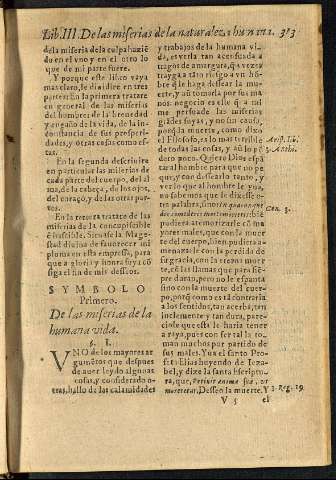 Lib. III. De las miserias de la naturaleza humana. 313
de la miseria de la culpa haziẽ
do en el vno y en el otro lo
que de mi parte fuere.
Y porque este libro vaya
mas claro, le diuidire en tres
partes: en la primera tratare
en general de las miserias
del hombre: de la breuedad
y engaño de la vida, de la in
constancia de sus prosperi-
dades, y otras cosas como es
tas.
En la segunda descriuire
en particular las miserias de
cada parte del cuerpo, del al
ma, de la cabeça, de los ojos,
del coraçõ, y de las otras par
tes.
En la tercera tratare de las
miserias de la concupiscible
è irascible. Siruase la Mage-
stad diuina de fauorecer mi
pluma en esta empressa, para
que a gloria y honra suya cõ
siga el fin de mis desseos.
SYMBOLO
Primero.
De las miserias de la
humana vida.
§. I.
VNO de los mayores ar
gumẽtos que despues
de auer leydo algunas
cosas, y considerado o-
tras, hallo de las calamidades
y trabajos de la humana vi
da, es verla tan acessada a
tragos de amargura, que
trayga a tãto riesgo a vn hõ
bre q̃ le haga dessear la muer
te. Y assi tomara por mas
negocio es ello que a mi
me persuade de las miserias
suyas, y no sin cau
porq̃ la muerte, como dixo
el Filosofo, es lo mas terrible
de todas las cosas, y aũ lo pu
dero poco. Quiere Dios espã
tar al hombre para que no pe
que, y con dessearlo tanto, y
ver lo que al hombre le yua,
no sabemos que le dixesse o-
tra palabra, sino
Gen. 3.
pudiera atemorizarle cõ ma
yores males, que con la muer
te del cuerpo, bien pudiera a-
menazarle con la perdida de
su gracia, con la eterna muer
te, cõ las llamas que para siẽ-
pre durã, pero no le espanta
sino con la muerte del cuer-
po, porq̃ como es tã contraria
a los sentidos, tan acerba, tan
inclemente y tan dura, pare-
ciole que esta le haria tener
a raya, pues con ser tal la to-
man muchos por partido de
sus males. Yua el santo Pro-
feta Elias huyendo de Ieza-
bel, y dize la santa Escriptu-
ra, que, Petiuit animæ suæ, vt
moreretur. Desseo la muerte. Y
3. Reg. 19
V 5 el